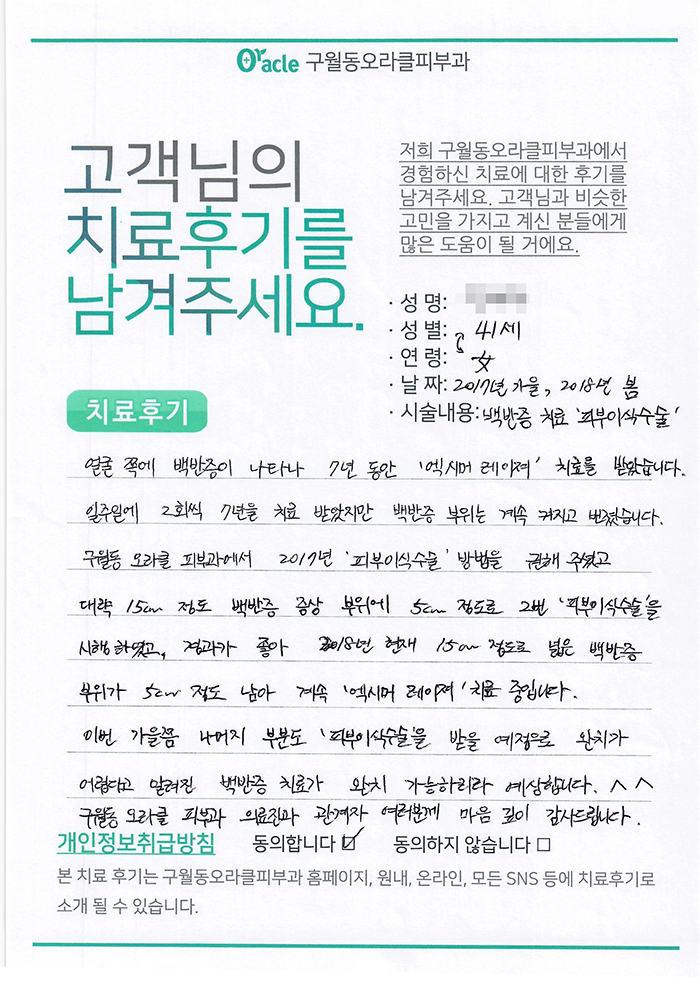 Oracle 구월동오라클피부과
고객님의
치료후기를
남겨주세요.
저희 구월동오라클피부과에서
경험하신 치료에 대한 후기를
남겨주세요. 고객님과 비슷한
고민을 가지고 계신 분들에게
많은 도움이 될 거에요.
· 성 명:
· 성 별: 41세
· 연 령: 女
· 날 짜: 2017년 가을, 2018년 봄
· 시술내용: 백반증 치료 '피부이식수술'
치료후기
얼굴 쪽에 백반증이 나타나 7년 동안 '엑시머 레이져' 치료를 받았습니다.
일주일에 2회씩 7년을 치료 받았지만 백반증 부위는 계속 커지고 번졌습니다.
구월동 오라클 피부과에서 2017년 '피부이식수술' 방법을 권해 주셨고
대략 15cm 정도 백반증 증상 부위에 5cm 정도로 2번 '피부이식수술'을
시행하였고, 경과가 좋아 2018년 현재 15cm 정도로 넓은 백반증
부위가 5cm 정도 남아 계속 '엑시머 레이져' 치료 중입니다.
이번 가을쯤 나머지 부분도 '피부이식수술'을 받을 예정으로 완치가
어렵다고 알려진 백반증 치료가 완치 가능하리라 예상합니다. ^^
구월동 오라클 피부과 의료진과 관계자 여러분께 마음 깊이 감사드립니다.
개인정보취급방침 동의합니다 ☑ 동의하지 않습니다 □
본 치료 후기는 구월동오라클피부과 홈페이지, 원내, 온라인, 모든 SNS 등에 치료후기로
소개 될 수 있습니다.